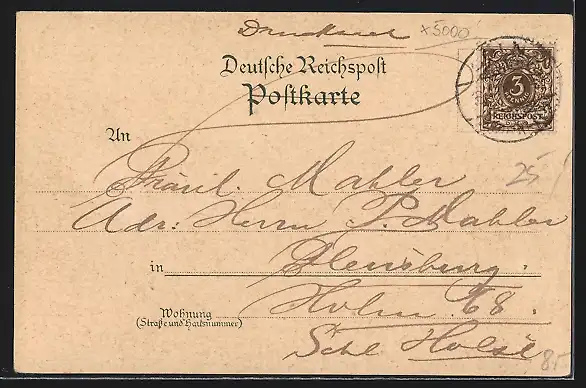 Drucksache
x5000
Deutsche Reichspost
Postkarte
3
PFENNIG
REICHSPOST
An
25
Fräul. Mahler
Adr: Herrn P. Mahler
in Flensburg.
Wohnung
(Straße und Hausnummer)
Holm 68.
Schl Holst
85